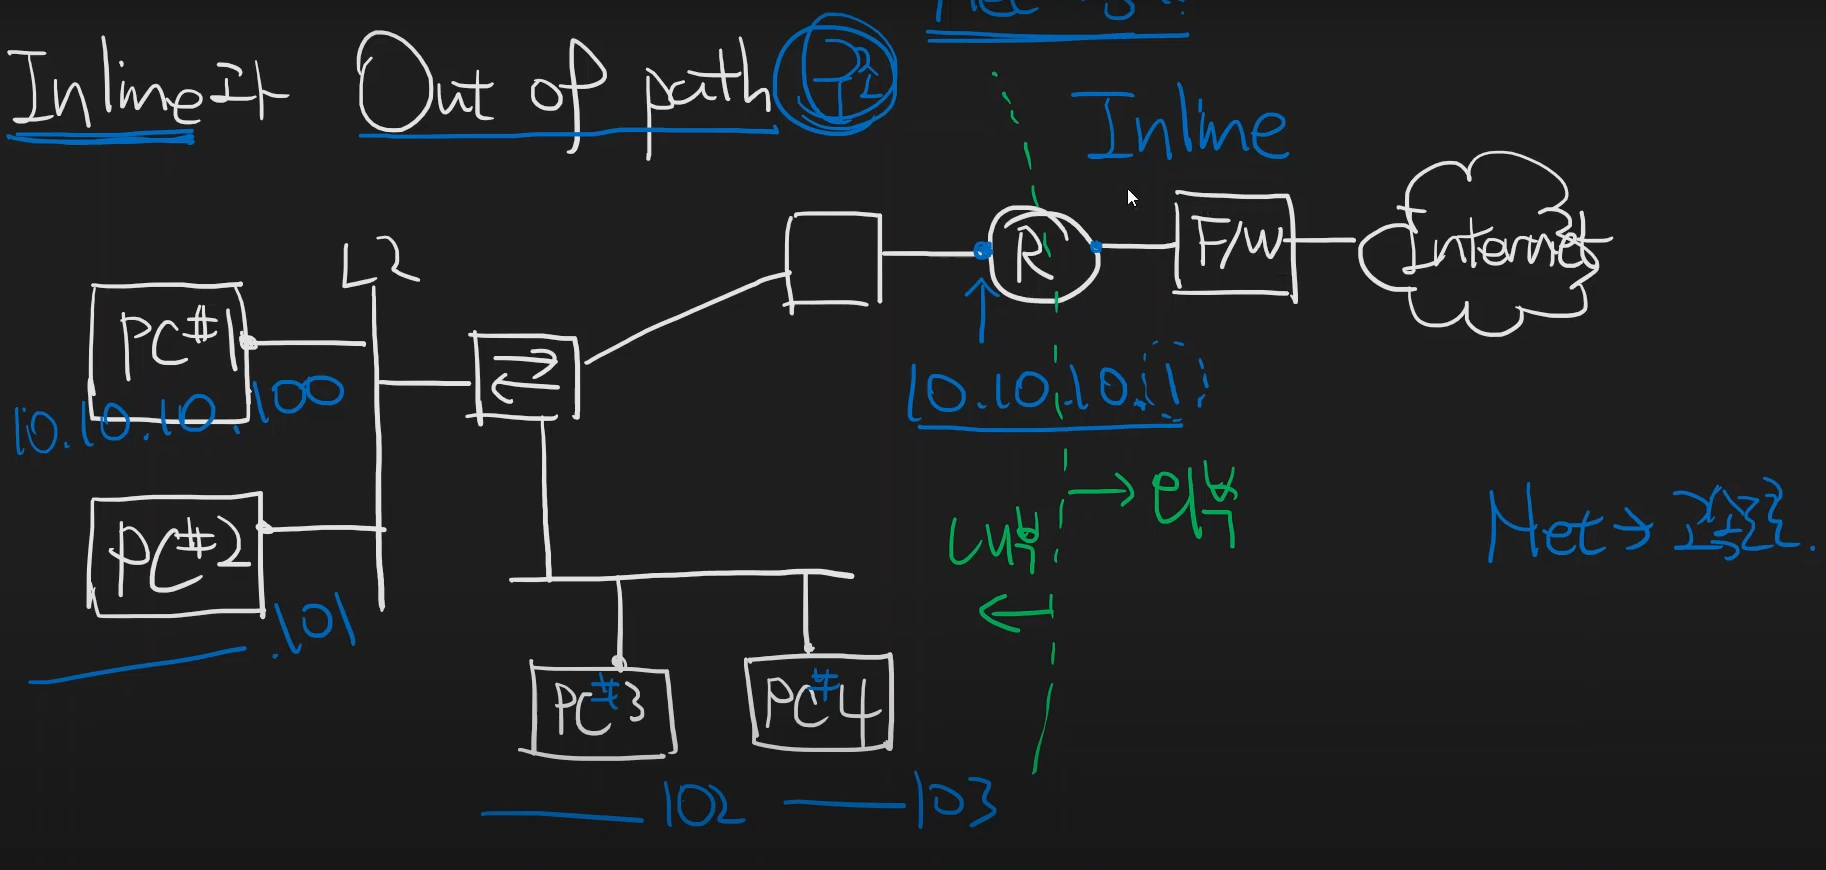 Inline과 Out of path
Inline
L2
PC#1
10.10.10.100
R
F/W
Internet
10.10.10.1
외부
내부
Net →
PC#2
.101
PC#3
PC#4
102
103